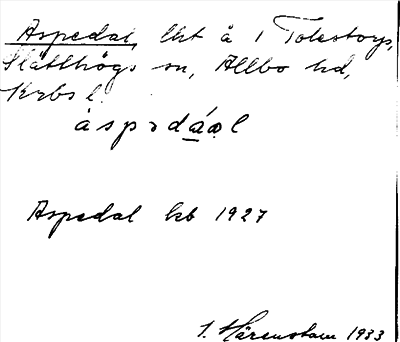 Aspedal, lht å 1 Tolestorp,
Slätthögs sn, Allbo hd,
Krbs l.
àspɔdáal
Aspedal kb 1927
I. Härenstam 1933